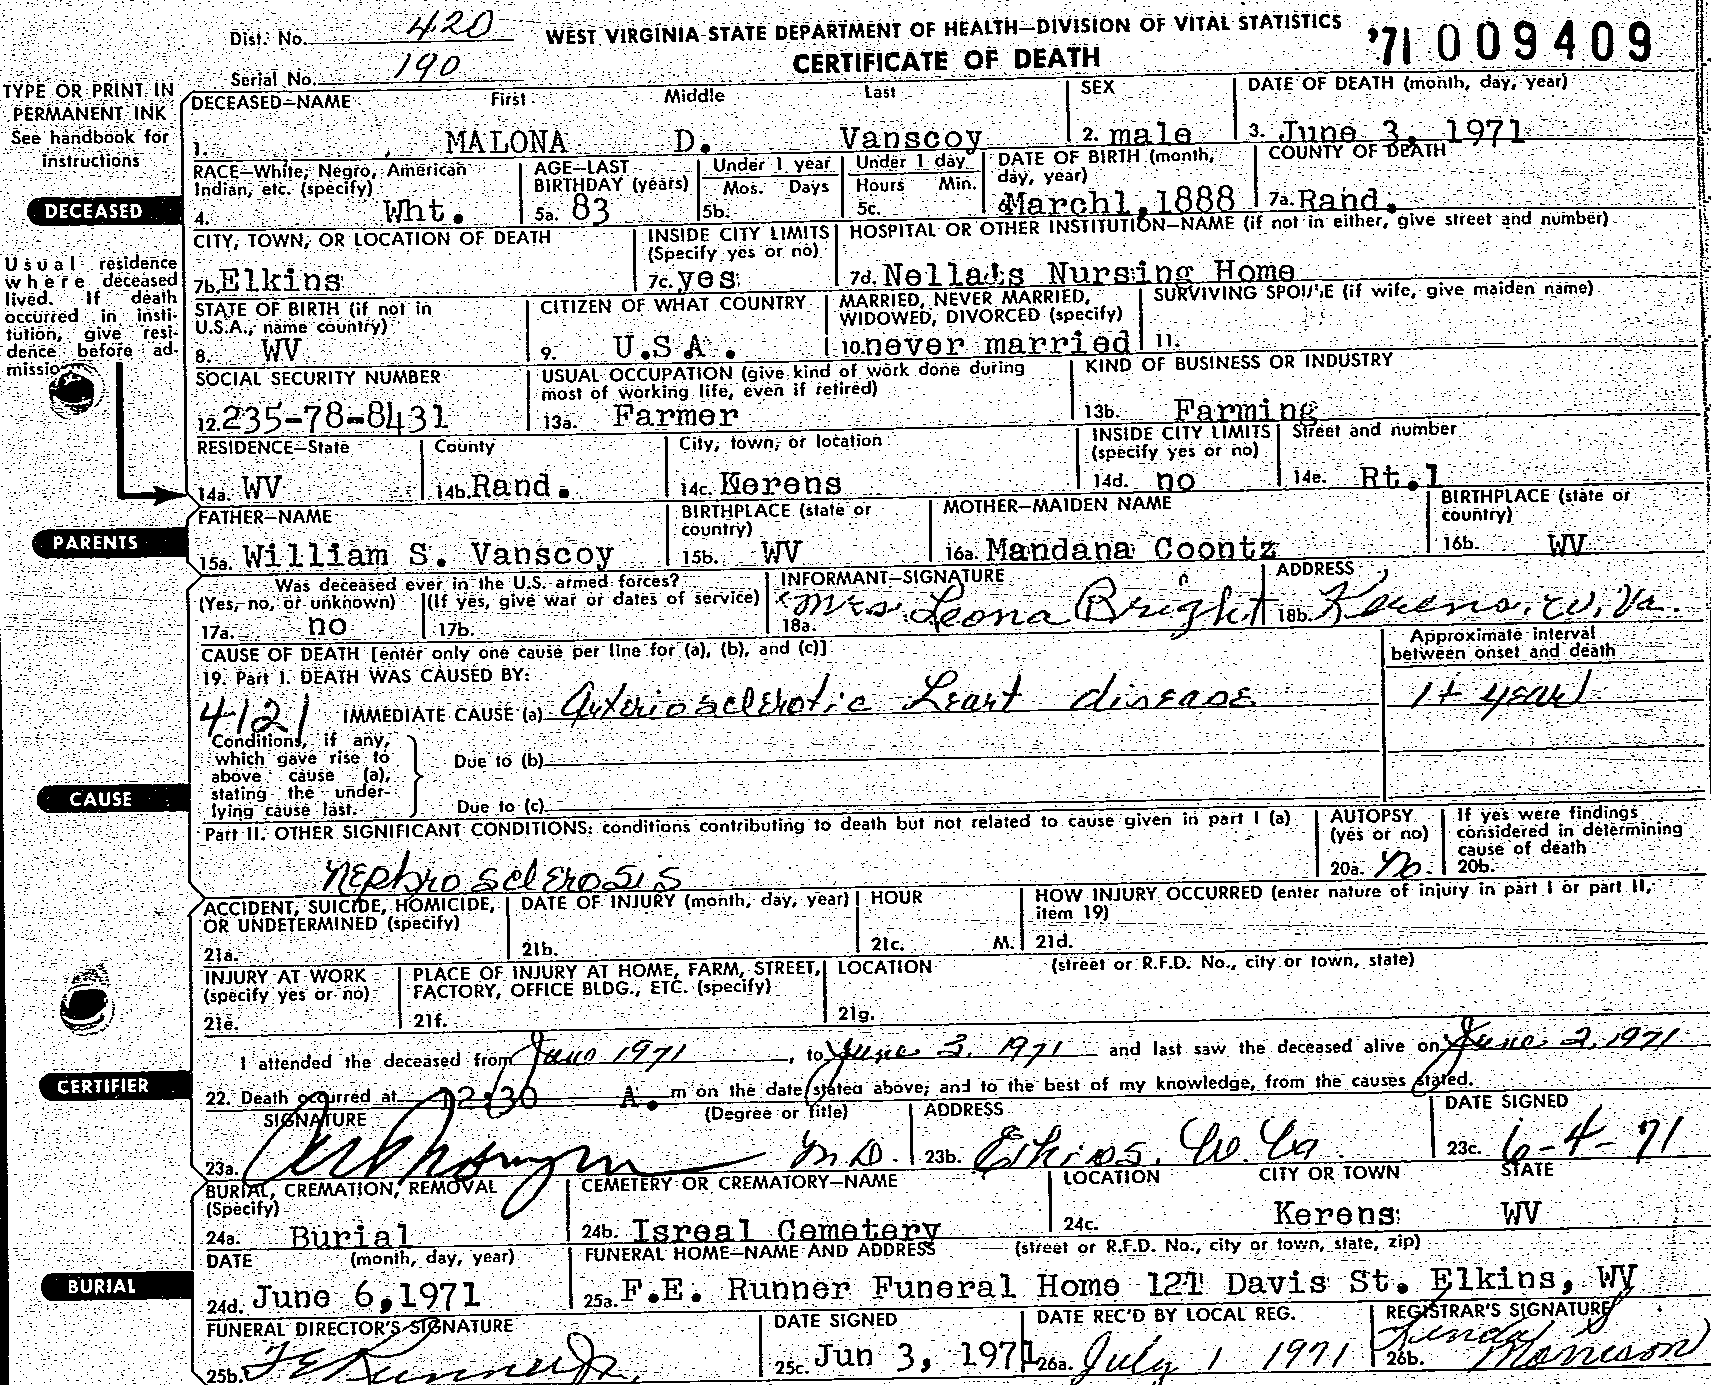 Dist. No. 420 WEST VIRGINIA STATE DEPARTMENT OF HEALTH—DIVISION OF VITAL STATISTICS '71 009409
Serial No. 190 CERTIFICATE OF DEATH
TYPE OR PRINT IN PERMANENT INK
See handbook for instructions
DECEASED—NAME First Middle Last SEX DATE OF DEATH (month, day, year)
1. MALONA D. Vanscoy 2. male 3. June 3, 1971
RACE—White, Negro, American Indian, etc. (specify) AGE—LAST BIRTHDAY (years) Under 1 year Under 1 day DATE OF BIRTH (month, day, year) COUNTY OF DEATH
Mos. Days Hours Min.
4. Wht. 5a. 83 5b. 5c. 6. March1,1888 7a. Rand.
DECEASED
CITY, TOWN, OR LOCATION OF DEATH INSIDE CITY LIMITS (Specify yes or no) HOSPITAL OR OTHER INSTITUTION—NAME (if not in either, give street and number)
7b. Elkins 7c. yes 7d. Nella's Nursing Home
Usual residence where deceased lived. If death occurred in institution, give residence before admission
STATE OF BIRTH (if not in U.S.A., name country) CITIZEN OF WHAT COUNTRY MARRIED, NEVER MARRIED, WIDOWED, DIVORCED (specify) SURVIVING SPOUSE (if wife, give maiden name)
8. WV 9. U.S.A. 10. never married 11.
SOCIAL SECURITY NUMBER USUAL OCCUPATION (give kind of work done during most of working life, even if retired) KIND OF BUSINESS OR INDUSTRY
12. 235-78-8431 13a. Farmer 13b. Farming
RESIDENCE—State County City, town, or location INSIDE CITY LIMITS (specify yes or no) Street and number
14a. WV 14b. Rand. 14c. Kerens 14d. no 14e. Rt.1
FATHER—NAME BIRTHPLACE (state or country) MOTHER—MAIDEN NAME BIRTHPLACE (state or country)
PARENTS
15a. William S. Vanscoy 15b. WV 16a. Mandana Coontz 16b. WV
Was deceased ever in the U.S. armed forces? INFORMANT—SIGNATURE ADDRESS
(Yes, no, or unknown) (If yes, give war or dates of service)
17a. no 17b. 18a. Mrs. Leona Bright 18b. Kerens, W. Va.
CAUSE OF DEATH [enter only one cause per line for (a), (b), and (c)] Approximate interval between onset and death
19. Part I. DEATH WAS CAUSED BY:
4121 IMMEDIATE CAUSE (a) Arteriosclerotic Heart disease 1+ year
Conditions, if any, which gave rise to above cause (a), stating the underlying cause last.
Due to (b)
CAUSE
Due to (c)
Part II. OTHER SIGNIFICANT CONDITIONS: conditions contributing to death but not related to cause given in part I (a) AUTOPSY (yes or no) If yes were findings considered in determining cause of death
nephrosclerosis 20a. No. 20b.
ACCIDENT, SUICIDE, HOMICIDE, OR UNDETERMINED (specify) DATE OF INJURY (month, day, year) HOUR HOW INJURY OCCURRED (enter nature of injury in part I or part II, item 19)
21a. 21b. 21c. M. 21d.
INJURY AT WORK (specify yes or no) PLACE OF INJURY AT HOME, FARM, STREET, FACTORY, OFFICE BLDG., ETC. (specify) LOCATION (street or R.F.D. No., city or town, state)
21e. 21f. 21g.
I attended the deceased from June 1971, to June 3, 1971 and last saw the deceased alive on June 2, 1971
CERTIFIER
22. Death occurred at 12:30 A. m on the date stated above; and to the best of my knowledge, from the causes stated.
SIGNATURE (Degree or Title) ADDRESS DATE SIGNED
23a. M.D. 23b. Elkins, W. Va. 23c. 6-4-71
BURIAL, CREMATION, REMOVAL (Specify) CEMETERY OR CREMATORY—NAME LOCATION CITY OR TOWN STATE
24a. Burial 24b. Isreal Cemetery 24c. Kerens WV
DATE (month, day, year) FUNERAL HOME—NAME AND ADDRESS (street or R.F.D. No., city or town, state, zip)
BURIAL
24d. June 6,1971 25a. F.E. Runner Funeral Home 121 Davis St. Elkins, WV
FUNERAL DIRECTOR'S SIGNATURE DATE SIGNED DATE REC'D BY LOCAL REG. REGISTRAR'S SIGNATURE
25b. F E Runner Jr. 25c. Jun 3, 1971 26a. July 1 1971 26b. Morrison